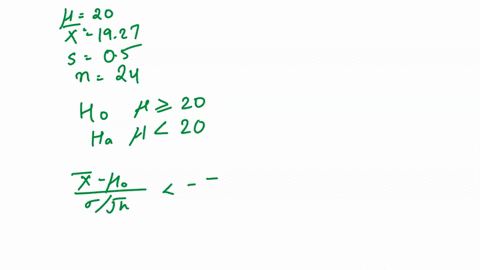 μ = 20
x̄ = 19.27
s = 0.5
n = 24
H₀ μ ≥ 20
Hₐ μ < 20
x̄ - μ₀
σ/√n < - -